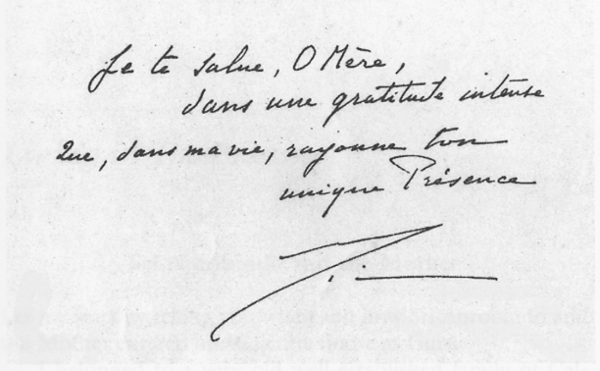 Je te salue, O Mère,
dans une gratitude intense
Que, dans ma vie, rayonne ton
unique Présence